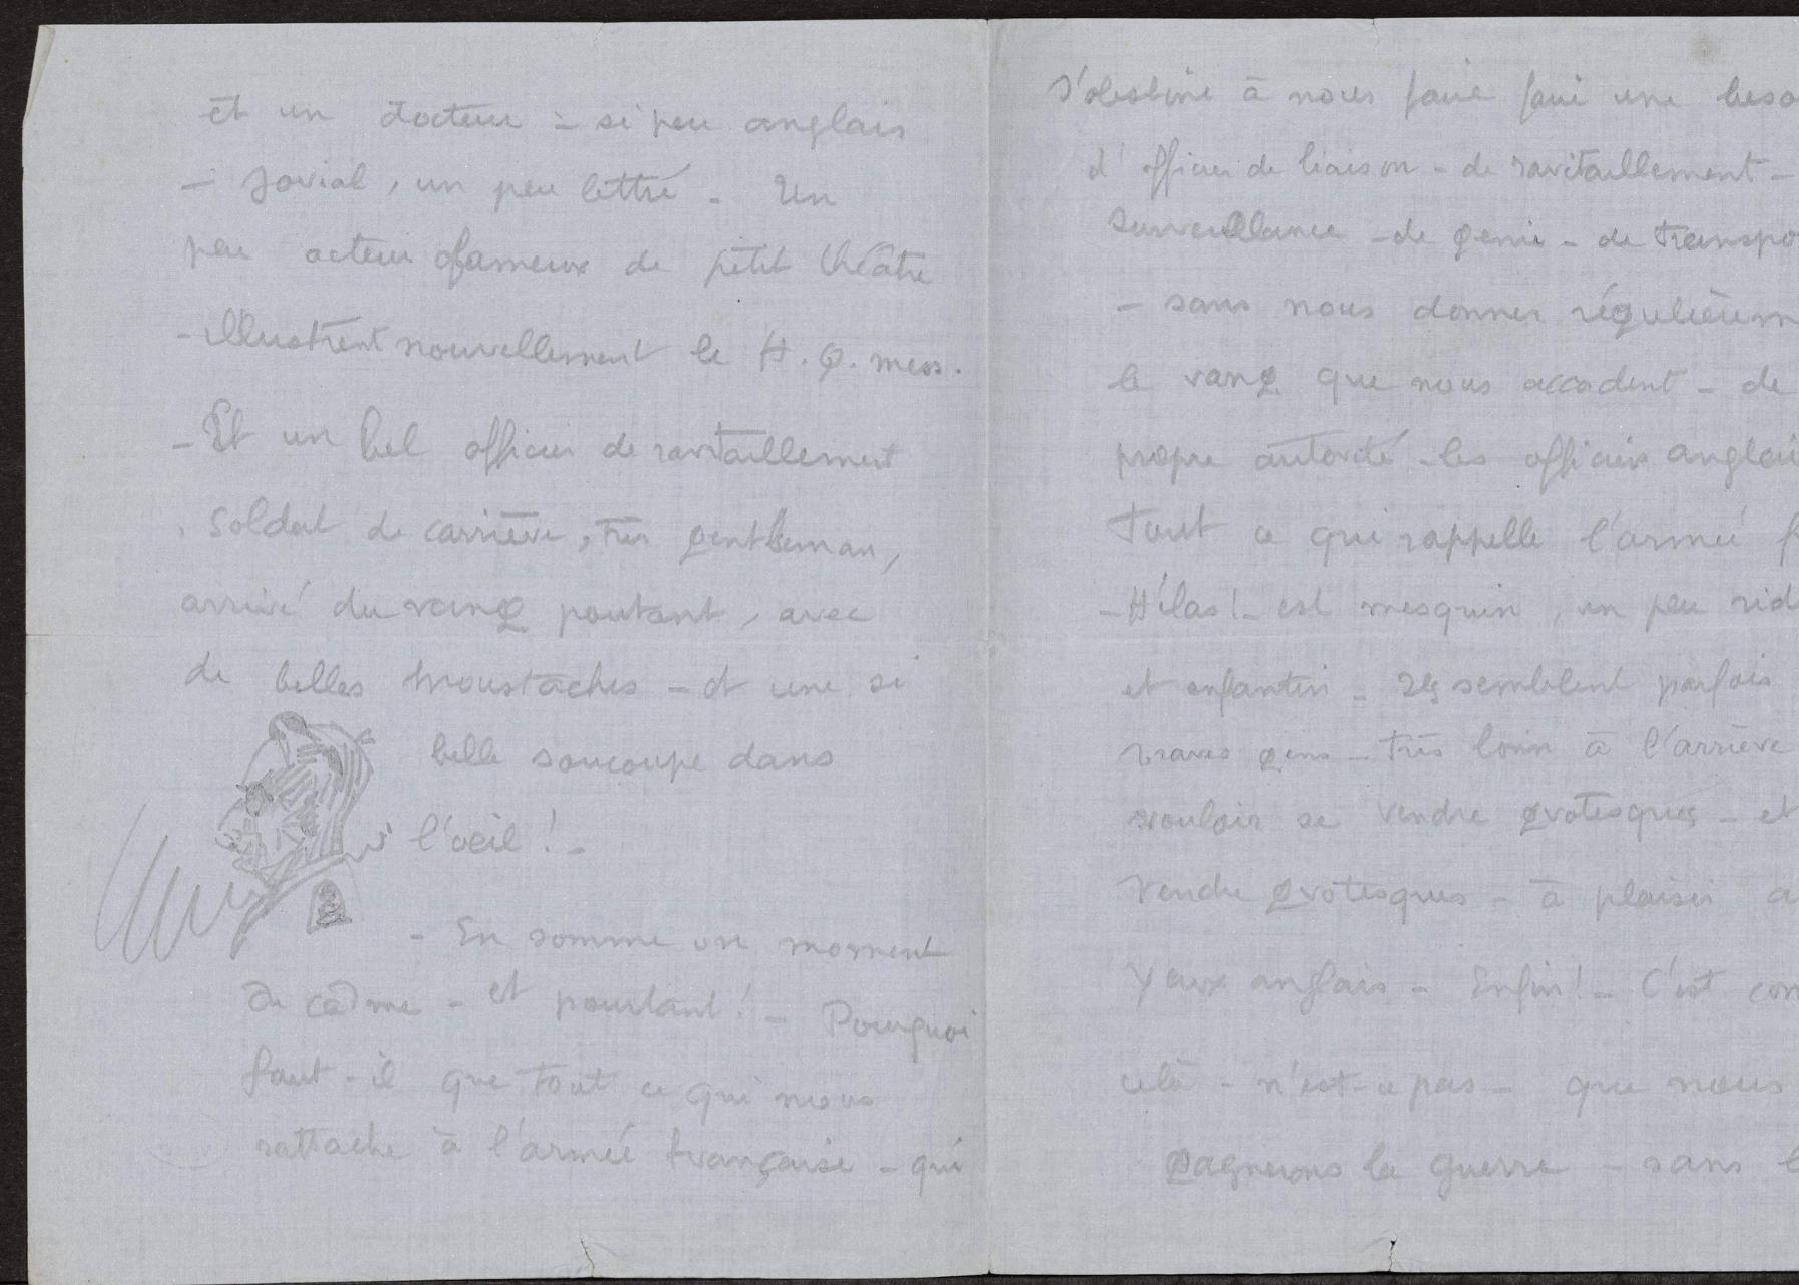 et un docteur - si peu anglais
- jovial, un peu lettré - Un
peu acteur fameux de petit théâtre
- illustrent nouvellement le H.Q. mess.
- Et un bel officier de ravitaillement
, soldat de carrière, très gentleman,
arrivé du rang poutant, avec
de belles moustaches - et une si
belle soucoupe dans
l'oeil ! -
- En somme un moment
de calme - et pourtant ! - Pourquoi
faut-il que tout ce qui nous
rattache à l'armée française - qui
s'obstine à nous faire faire une beso
d'officier de liaison - de ravitaillement -
surveillance - de génie - de transpo
- sans nous donner régulièrem
le rang que nous accordent - de
propre autorité - les officiers anglai
Tout ce qui rappelle l'armée f
- Hélas ! - est mesquin, un peu rid
et enfantin - semblent parfois
braves gens - très loin à l'arrière
vouloir se rendre grotesques - et
rendre grotesques - à plaisir a
yeux anglais - Enfin ! - C'est com
celà - n'est-ce pas - que nous
gagnerons la guerre - sans l